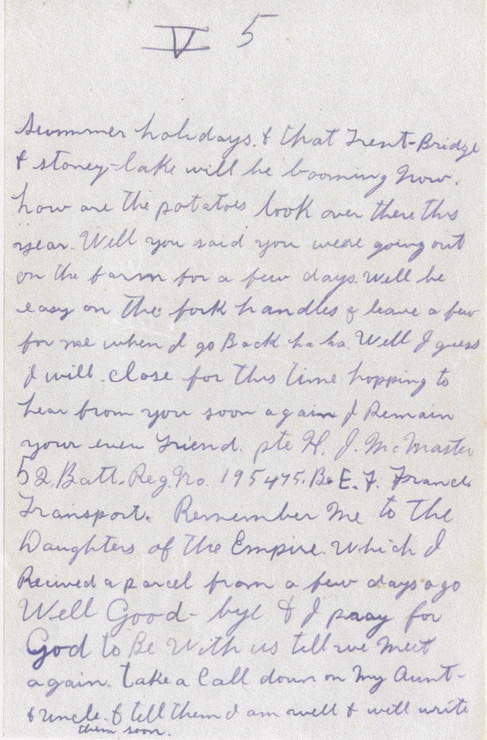 V 5
Summer holidays. & that Trent-Bridge
& stoney-lake will be booming now.
how are the potatoes look over there this
year. Well you said you were going out
on the farm for a few days. Well be
easy on the fork handles & leave a few
for me when I go Back ha ha. Well I guess
I will close for this time hopping to
hear from you soon again I Remain
your ever Friend. pte H. J. McMaster
52. Batt. Reg. No. 195475. B. E. F. France
Transport. Remember Me to the
Daughters of the Empire. Which I
Recived a parcel from a few days ago
Well Good-bye & I pray for
God to Be With us till we Meet
again. take a Call down on My Aunt-
& Uncle. & tell them I am well & will write
them soon.